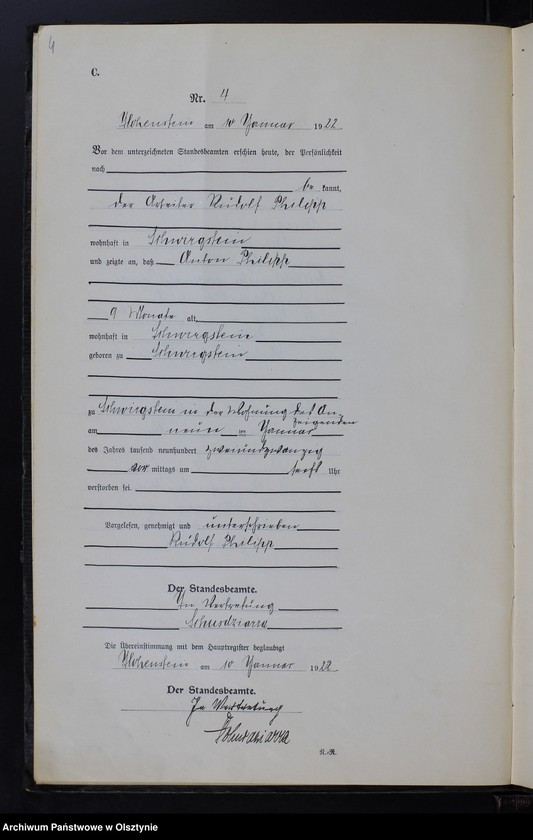 4
C.
Nr. 4
Hohenstein am 10 Januar 1922
Vor dem unterzeichneten Standesbeamten erschien heute, der Persönlichkeit
nach
be kannt,
der Arbeiter Rudolf Philipp
wohnhaft in Schwirgstein
und zeigte an, daß Anton Philipp
9 Monate alt,
wohnhaft in Schwirgstein
geboren zu Schwirgstein
zu Schwirgstein in der Wohnung des An-
zeigenden
am neun ten Januar
des Jahres tausend neunhundert zweiundzwanzig
vor mittags um sechs Uhr
verstorben sei.
Vorgelesen, genehmigt und unterschrieben
Rudolf Philipp
Der Standesbeamte.
In Vertretung
Die Übereinstimmung mit dem Hauptregister beglaubigt
Hohenstein am 10 Januar 1922
Der Standesbeamte.
In Vertretung
N.-R.
Archiwum Państwowe w Olsztynie